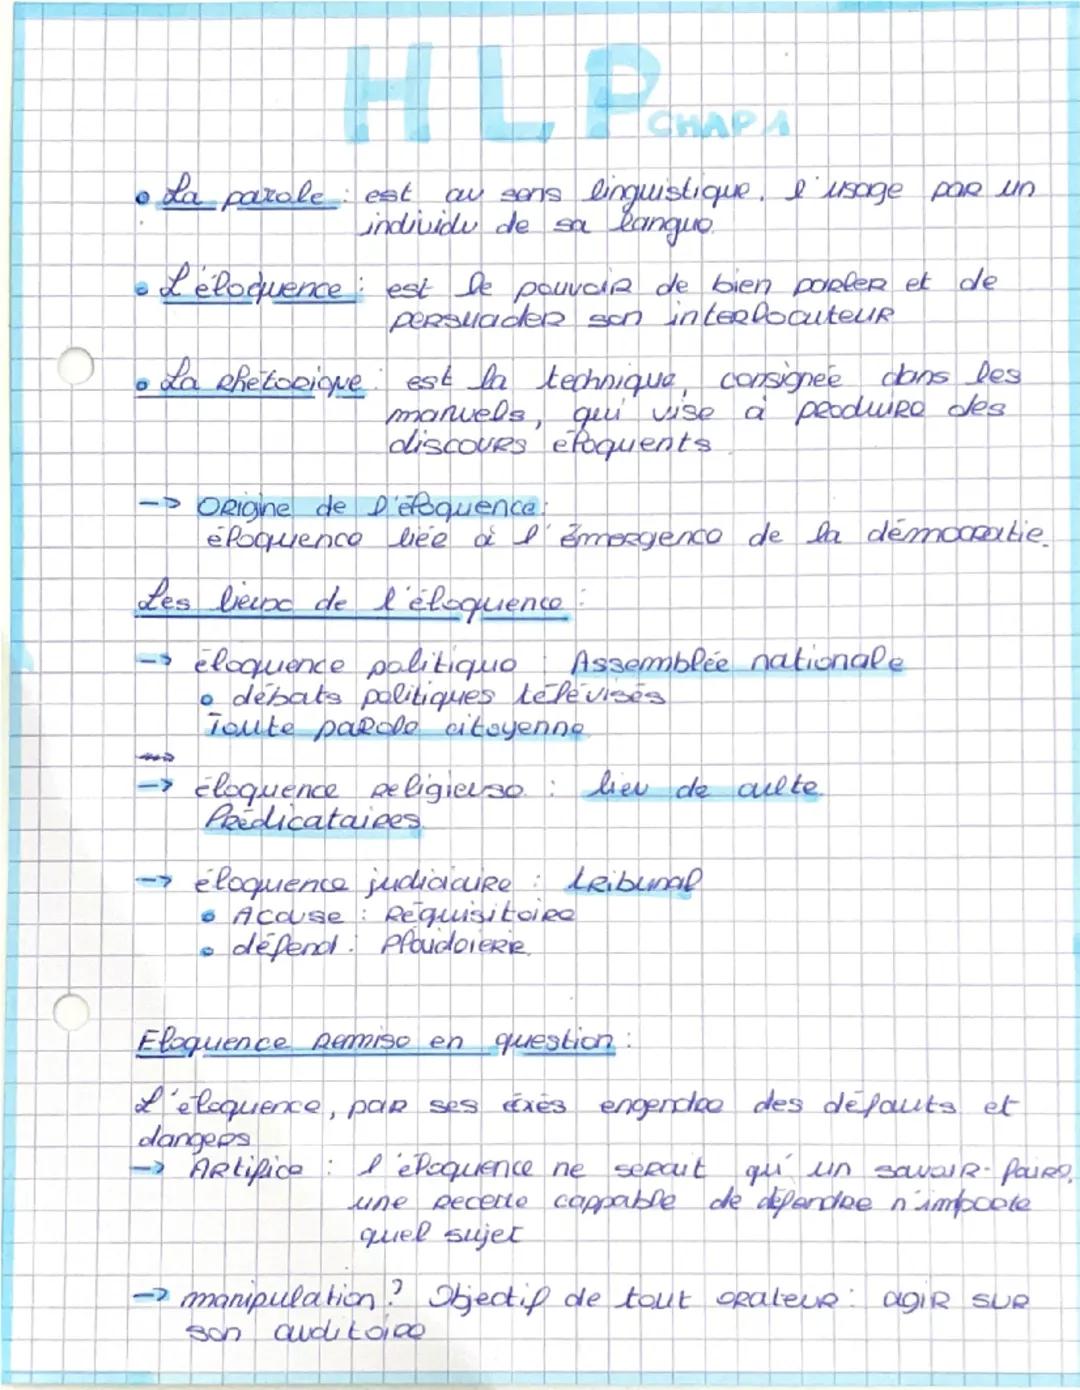 HLP CHAP 1
• La parole : est au sens linguistique, l'usage par un
individu de sa langue.
• L'éloquence : est le pouvoir de bien parler et de
persuader son interlocuteur
• La rhétorique : est la technique, consignée dans les
manuels, qui vise à produire des
discours éloquents.
--> Origine de l'éloquence :
éloquence liée à l'émergence de la démocratie.
Les lieux de l'éloquence :
--> éloquence politique : Assemblée nationale
• débats politiques télévisés
Toute parole citoyenne
--> éloquence religieuse : lieu de culte.
Prédicataires.
--> éloquence judiciaire : tribunal
• Acause : Réquisitoire
• défend : Plaidoierie.
Eloquence remise en question :
L'éloquence, par ses éxés engendre des défauts et
dangers
--> Artifice : l'éloquence ne serait qu'un savoir-faire,
une recette cappable de défendre n'importe
quel sujet
--> manipulation ? Objectif de tout orateur : agir sur
son auditoire